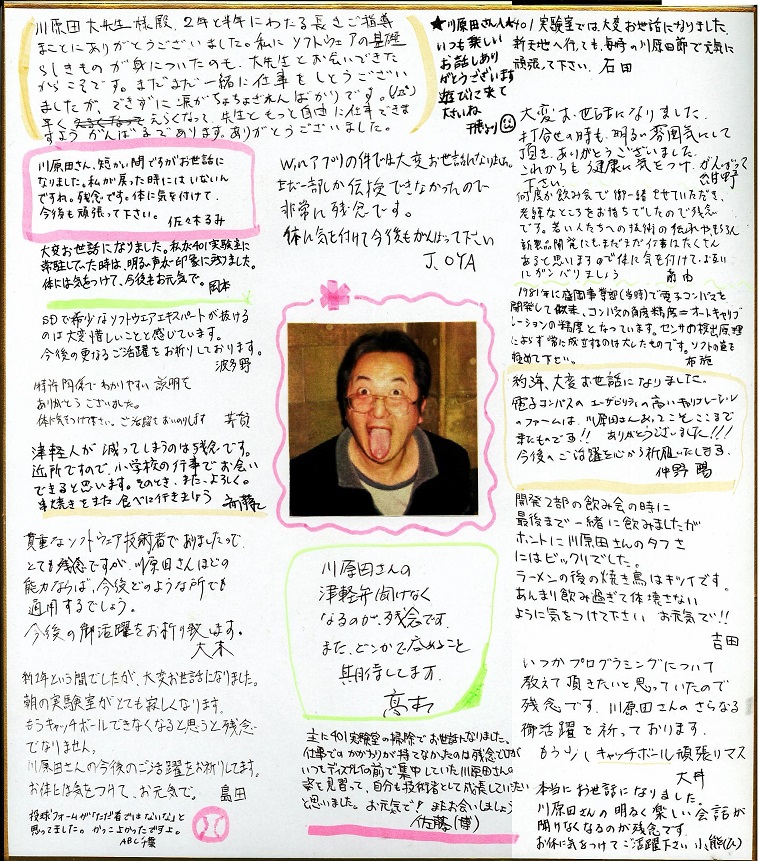 川原田大先生様殿、2年と半年にわたる長きご指導
まことにありがとうございました。私にソフトウェアの基礎
らしきものが身についたのも、大先生とお会いできた
からこそです。まだまだ一緒に仕事をしとうござい
ましたが、できずに涙がちょちょぎれんばかりです。
早く えらくなって、先生ともっと自由に仕事できま
すよう がんばるであります。ありがとうございました。
★川原田さん★
いつも楽しい
お話しあり
がとうございます
遊びに来て
下さいね
401実験室では、大変お世話になりました。
新天地へ行っても、毎時の川原田節で元気に
頑張って下さい。 石田
大変お世話になりました。
打合せの時も、明るい雰囲気にして
頂き、ありがとうございました。
これからも健康に気をつけ、がんばって
下さい。 紺野
川原田さん、短かい間ですがお世話に
なりました。私が戻った時にはいないん
ですね。残念です。体に気を付けて、
今後も頑張って下さい。 佐々木るみ
Winアプリの件では大変お世話になりました。
まだ一部しか伝授できなかったので
非常に残念です。
体に気を付けて今後もがんばって下さい
J.OYA
何度か飲み会で御一緒させていただき、
お持ちでしたので残念
です。若い人たちへの技術の伝承やもちろん
新製品開発にもまだまだ仕事はたくさん
あると思いますので体に気を付けて
ガンバリましょう
大変お世話になりました。私が401実験室に
常駐していた時は、明るい声が印象に残りました。
体には気をつけて、今後もお元気で。 岡本
SDで希少なソフトウエアエキスパートが抜ける
のは大変惜しいことと感じています。
今後の更なるご活躍をお祈りしております。
波多野
1981年に盛岡事業部(当時)で電子コンパスを
開発して以来、コンパスの角度精度=オートキャリブ
レーションの精度となっています。センサの検出原理
によらず常に成立するのは大したものです。ソフトの道を
極めて下さい。 布施
特許関係でわかりやすい説明を
ありがとうございました。
体に気をつけて下さい。ご活躍をお祈りします 芳賀
約3年、大変お世話になりました。
電子コンパスのユーザビリティの高いキャリブレーション
のファームは、川原田さんあってこそここまで
来たものです!! ありがとうございました!!!
今後のご活躍を心からお祈り致します。
仲野 陽
津軽人が減ってしまうのは残念です。
近所ですので、小学校の行事でお会い
できると思います。そのとき、また、よろしく。
串焼きをまた、食べに行きましょう 斎藤
開発2部の飲み会の時に
最後まで一緒に飲みましたが
ホントに川原田さんのタフさ
にはビックリでした。
ラーメンの後の焼き鳥はキツイです。
あんまり飲み過ぎて体壊さない
ように気をつけて下さい お元気で!!
吉田
貴重なソフトウェア技術者でありましたので
とても残念ですが、川原田さんほどの
能力ならば、今後どのような所でも
通用するでしょう。
今後の御活躍をお祈り致します。
大木
川原田さんの
津軽弁が聞けなく
なるのが、残念です。
また、どこかで広めること
期待してます。
高木
いつかプログラミングについて
教えて頂きたいと思っていたので
残念です。川原田さんのさらなる
御活躍を祈っております。
もう少しキャッチボール頑張りマス
大井
約2年という間でしたが、大変お世話になりました。
朝の実験室がとても寂しくなります。
もうキャッチボールできなくなると思うと残念
でなりません。
川原田さんの今後のご活躍をお祈りしてます。
お体には気をつけて、お元気で。 島田
投球フォームが「ただ者ではないな」と
思ってました。かっこよかったですよ。
主に401実験室の掃除でお世話になりました。
仕事でのかかわりが持てなかったのは残念ですが
いつもディスプレイの前で集中していた川原田さんの
姿を見習って、自分も技術者として成長していきたい
と思いました。お元気で! またお会いしましょう
佐藤(博)
本当にお世話になりました。
川原田さんの明るく楽しい会話が
聞けなくなるのが残念です。
お体に気をつけてご活躍下さい 小熊(ひ)